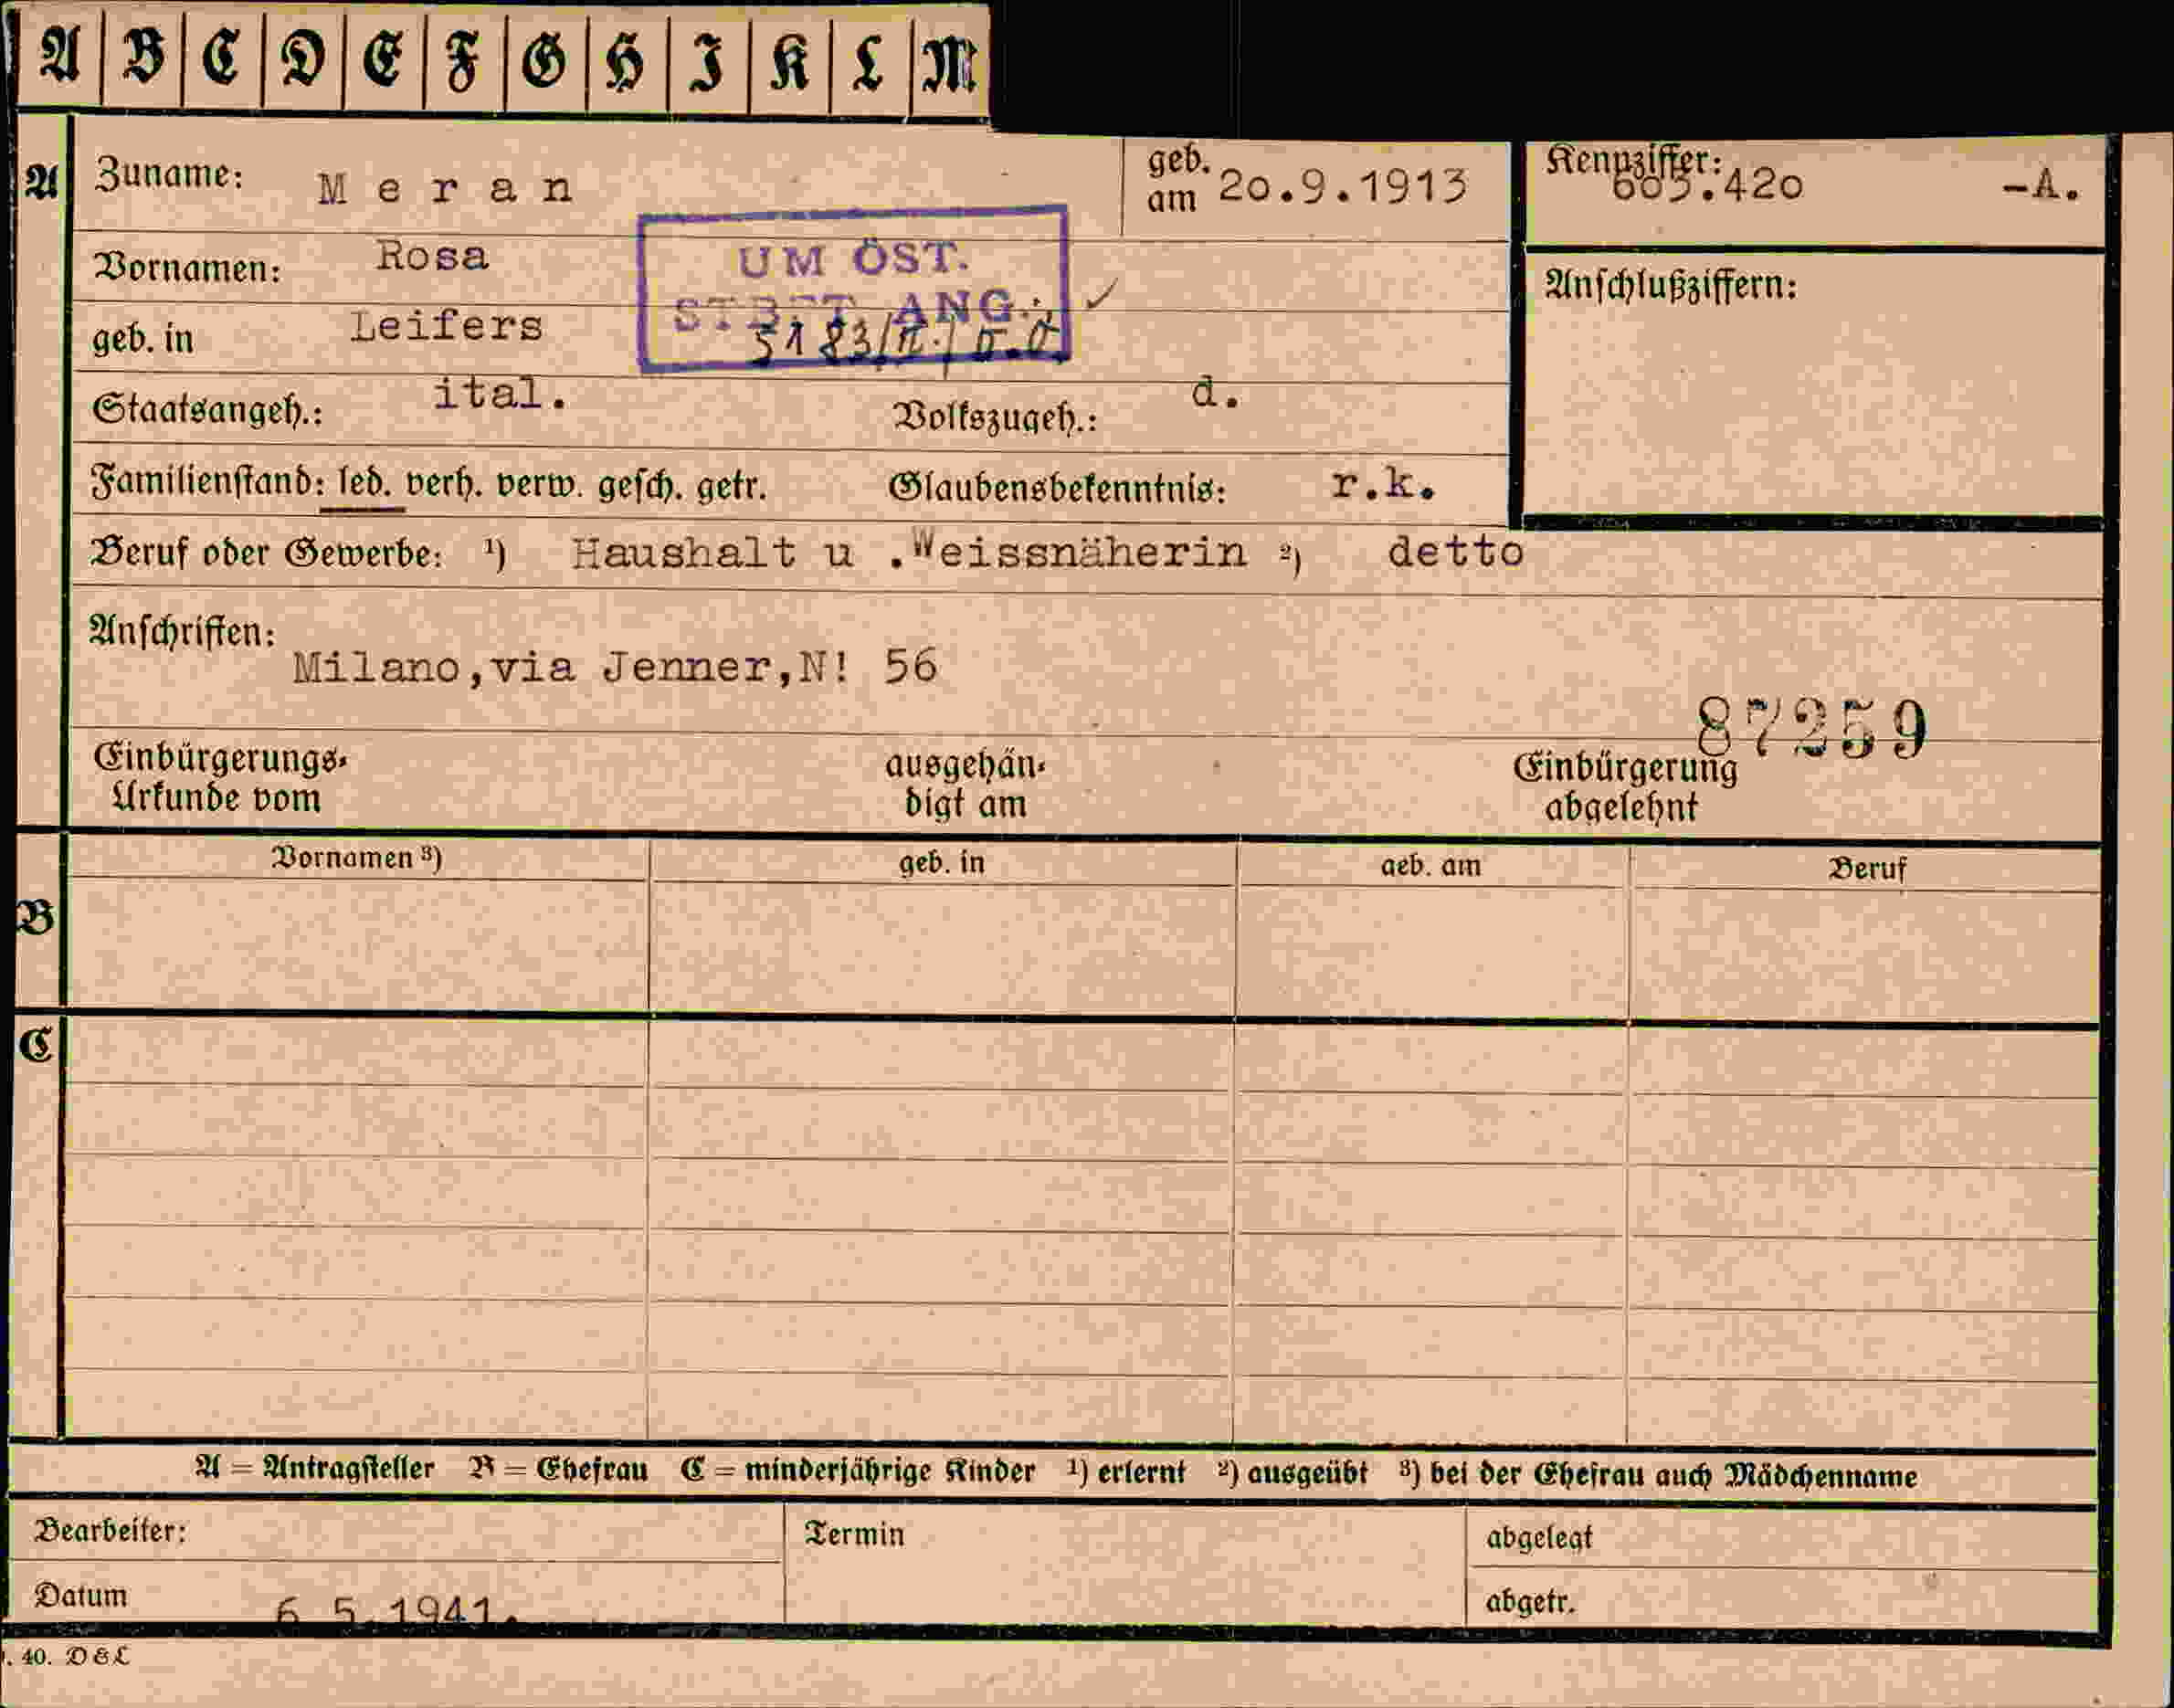 A B C D E F G H I K L M
A Zuname: Meran geb. am 20.9.1913 Kennziffer: 603.420 -A.
Vornamen: Rosa
UM ÖST.
Anschlußziffern:
geb. in Leifers
ANG.
Staatsangeh.: ital. Volkszugeh.: d.
Familienstand: led. verh. verw. gesch. getr. Glaubensbekenntnis: r.k.
Beruf oder Gewerbe: ¹) Haushalt u .Weissnäherin ²) detto
Anschriften:
Milano,via Jenner,N! 56
87259
Einbürgerungs- ausgehän- Einbürgerung
Urkunde vom digt am abgelehnt
B Vornamen ³) geb. in geb. am Beruf
C
A = Antragsteller B = Ehefrau C = minderjährige Kinder ¹) erlernt ²) ausgeübt ³) bei der Ehefrau auch Mädchenname
Bearbeiter: Termin abgelegt
Datum 6 5.1941. abgetr.
. 40. D & L